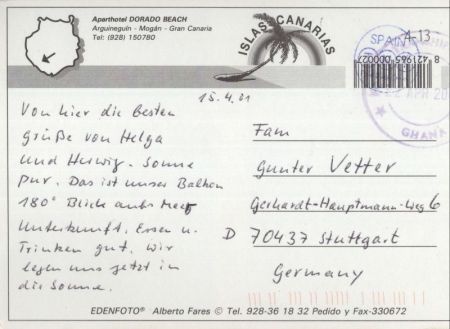 Aparthotel DORADO BEACH
Arguineguin - Mogán - Gran Canaria
Tel: (928) 150780
ISLAS CANARIAS
SPAIN
4-13
8 421965 000027
GHANA
15.4.01
Von hier die besten
Grüße von Helga
und Herwig. Sonne
pur. Das ist unser Balkon
180° Blick aufs Meer
Unterkunft, Essen u.
Trinken gut. Wir
legen uns jetzt in
die Sonne.
Fam
Gunter Vetter
Gerhardt-Hauptmann-Weg 6
D 70437 Stuttgart
Germany
EDENFOTO® Alberto Fares © Tel. 928-36 18 32 Pedido y Fax-330672